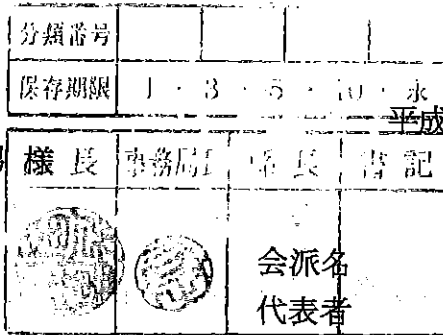 分類番号
保存期限 1・3・5・10・永
平成
様 長 事務局長 長 書記
会派名
代表者